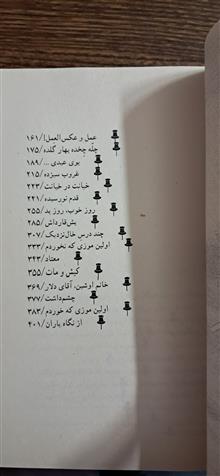 عمل و عکس‌العمل!/۱۶۱
چلّه چخده بهار گلده/۱۷۵
بوی عیدی .../۱۸۹
غروب سبزده/۲۱۵
خیانت در خیانت/۲۲۳
قدم نورسیده/۲۴۱
روز خوب، روز بد/۲۵۵
بش‌قارداش/۲۸۵
چند درس خال‌نزدیک/۳۰۷
اولین موزی که نخوردم/۳۳۳
معتاد/۳۴۳
کیش و مات/۳۵۵
خانم اوشین، آقای دلار/۳۶۹
چشم‌داشت/۳۷۷
اولین موزی که خوردم/۳۸۳
از نگاه باران/۴۰۱